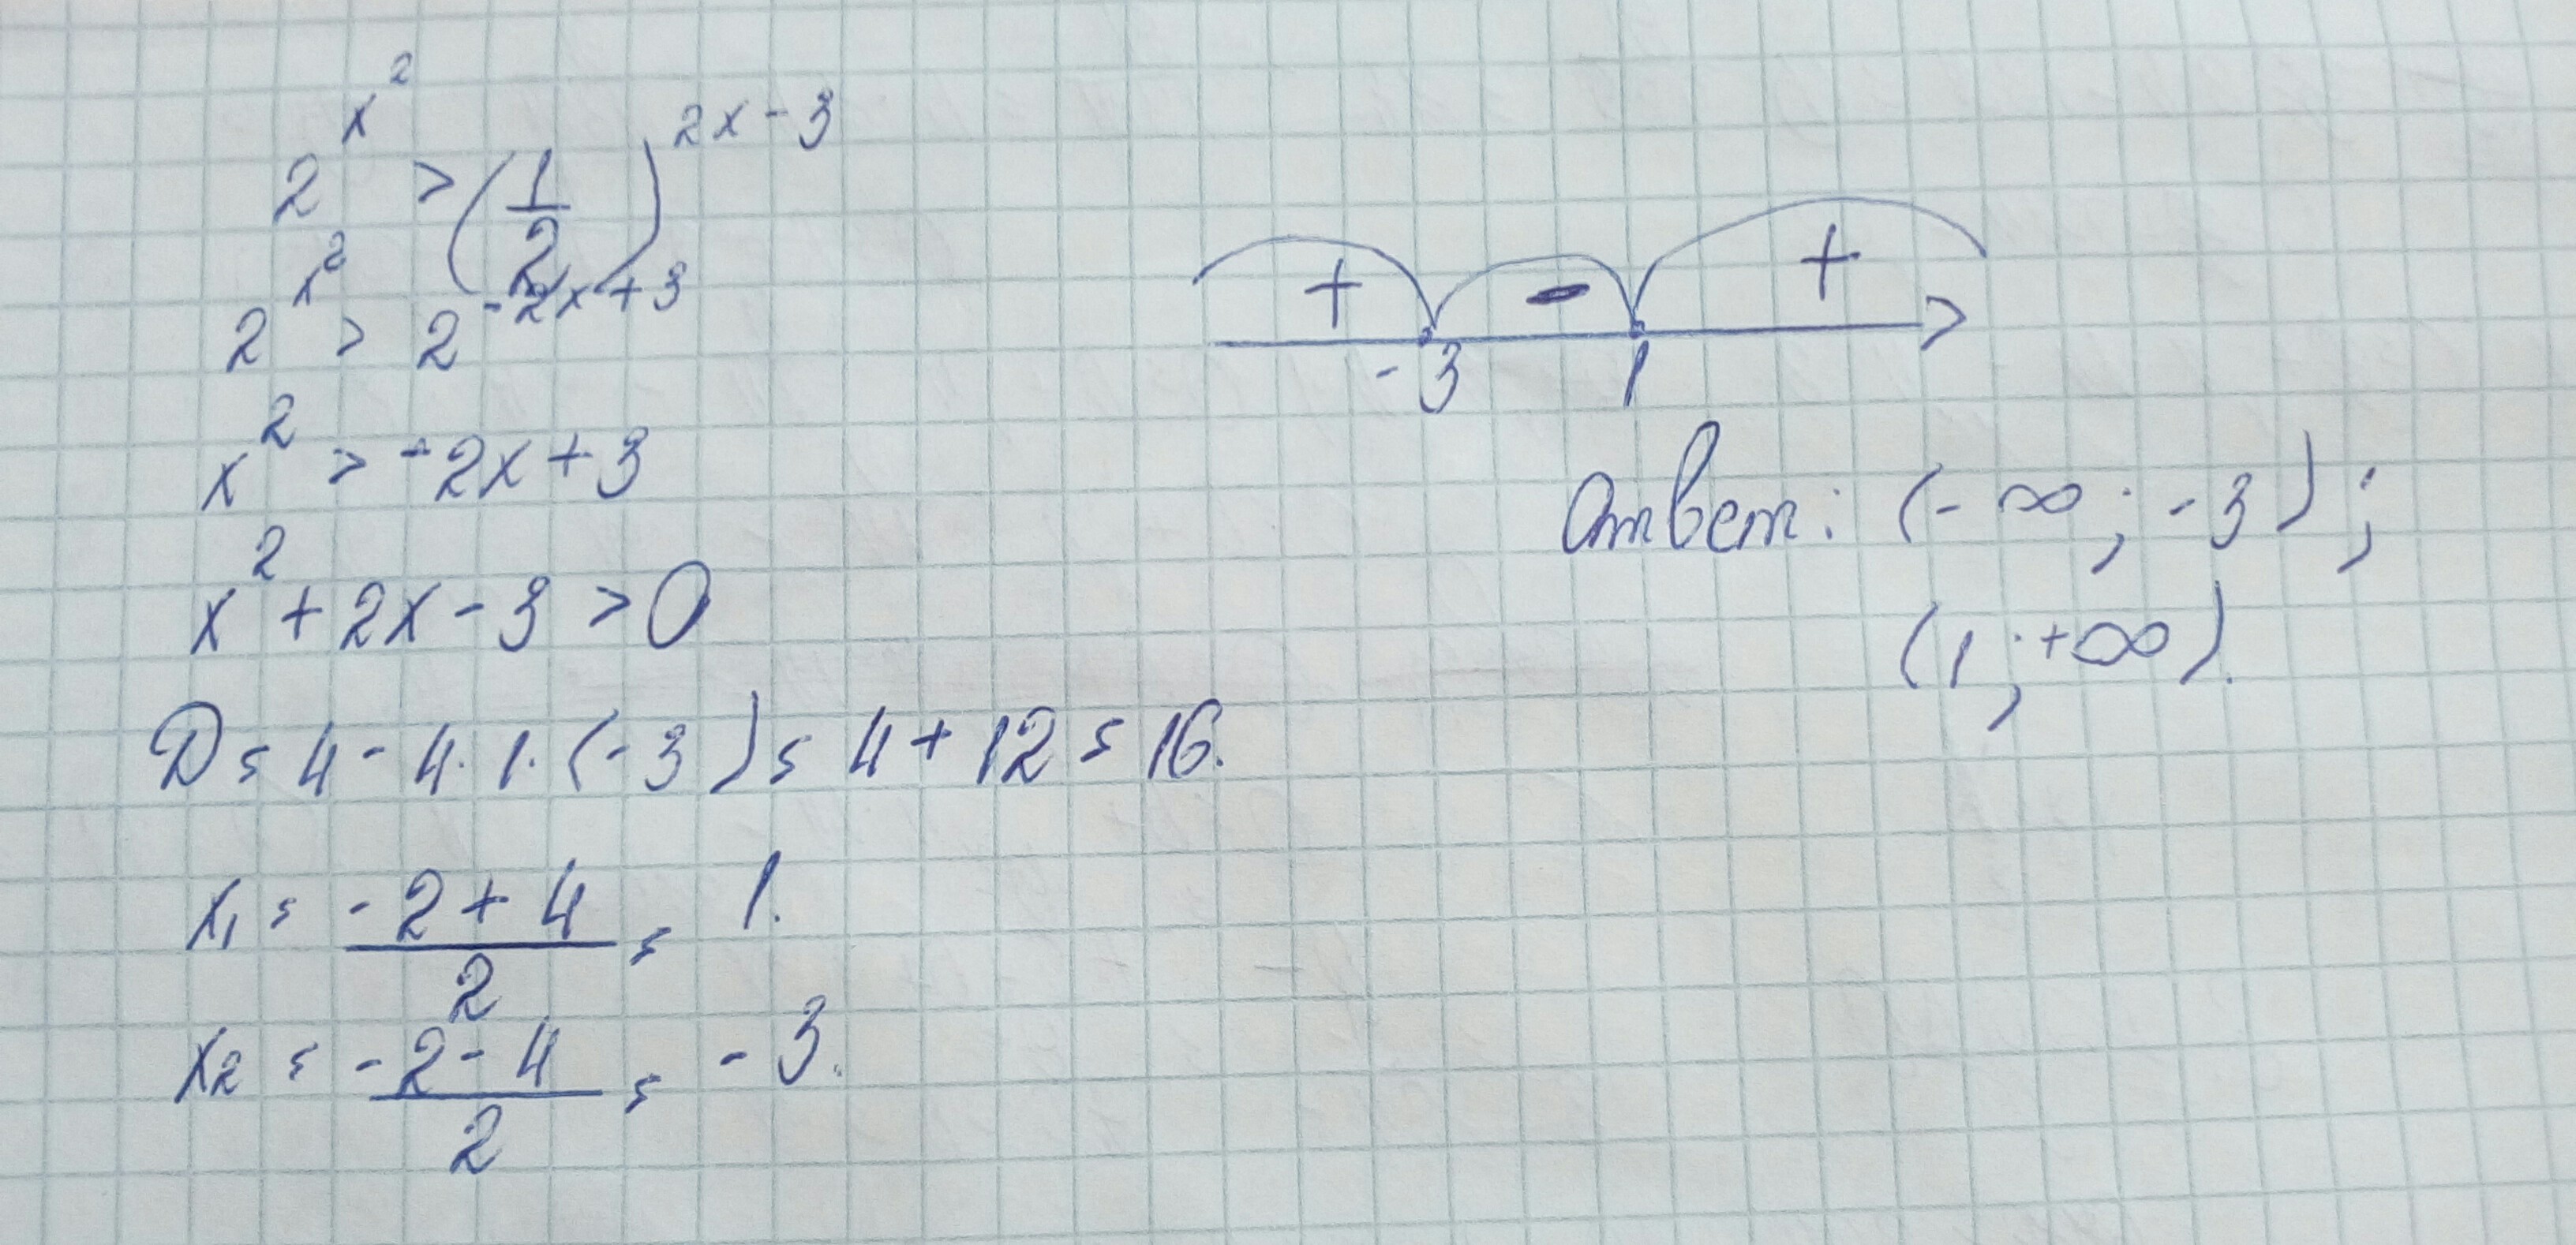 2^{x^2} > (1/2)^{2x-3}
2^{x^2} > 2^{-2x+3}
x^2 > -2x+3
x^2+2x-3 >0
D = 4 - 4·1·(-3) = 4 + 12 = 16.
x_1 = (-2+4)/2 = 1.
x_2 = (-2-4)/2 = -3.
+ - +
-3 1
Ответ: (-∞; -3);
(1; +∞).